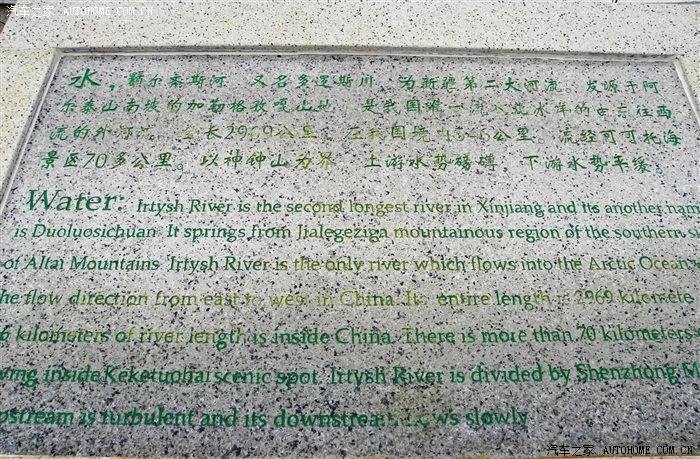 汽车之家 AUTOHOME.COM.CN
水,额尔齐斯河 又名多逻斯川、为新疆第二大河流。发源于阿
尔泰山南坡的加勒格孜嘎山地 是我国唯一流入北冰洋的自东往西
流的外河流。全长2969公里、在我国境内 6公里。流经可可托海
景区70多公里。以神钟山为界 上游水势磅礴,下游水势平缓。
Water: Irtysh River is the second longest river in Xinjiang and its another nam
is Duoluosichuan. It springs from Jialegeziga mountainous region of the southern sl
of Altai Mountains. Irtysh River is the only river which flows into the Arctic Ocean
he flow direction from east to west in China. Its entire length is 2969 kilomete
6 kilometers of river length is inside China. There is more than 70 kilometers
ving inside Keketuohai scenic spot. Irtysh River is divided by Shenzhong M
pstream is turbulent and its downstream flows slowly
汽车之家 AUTOHOME.COM.CN